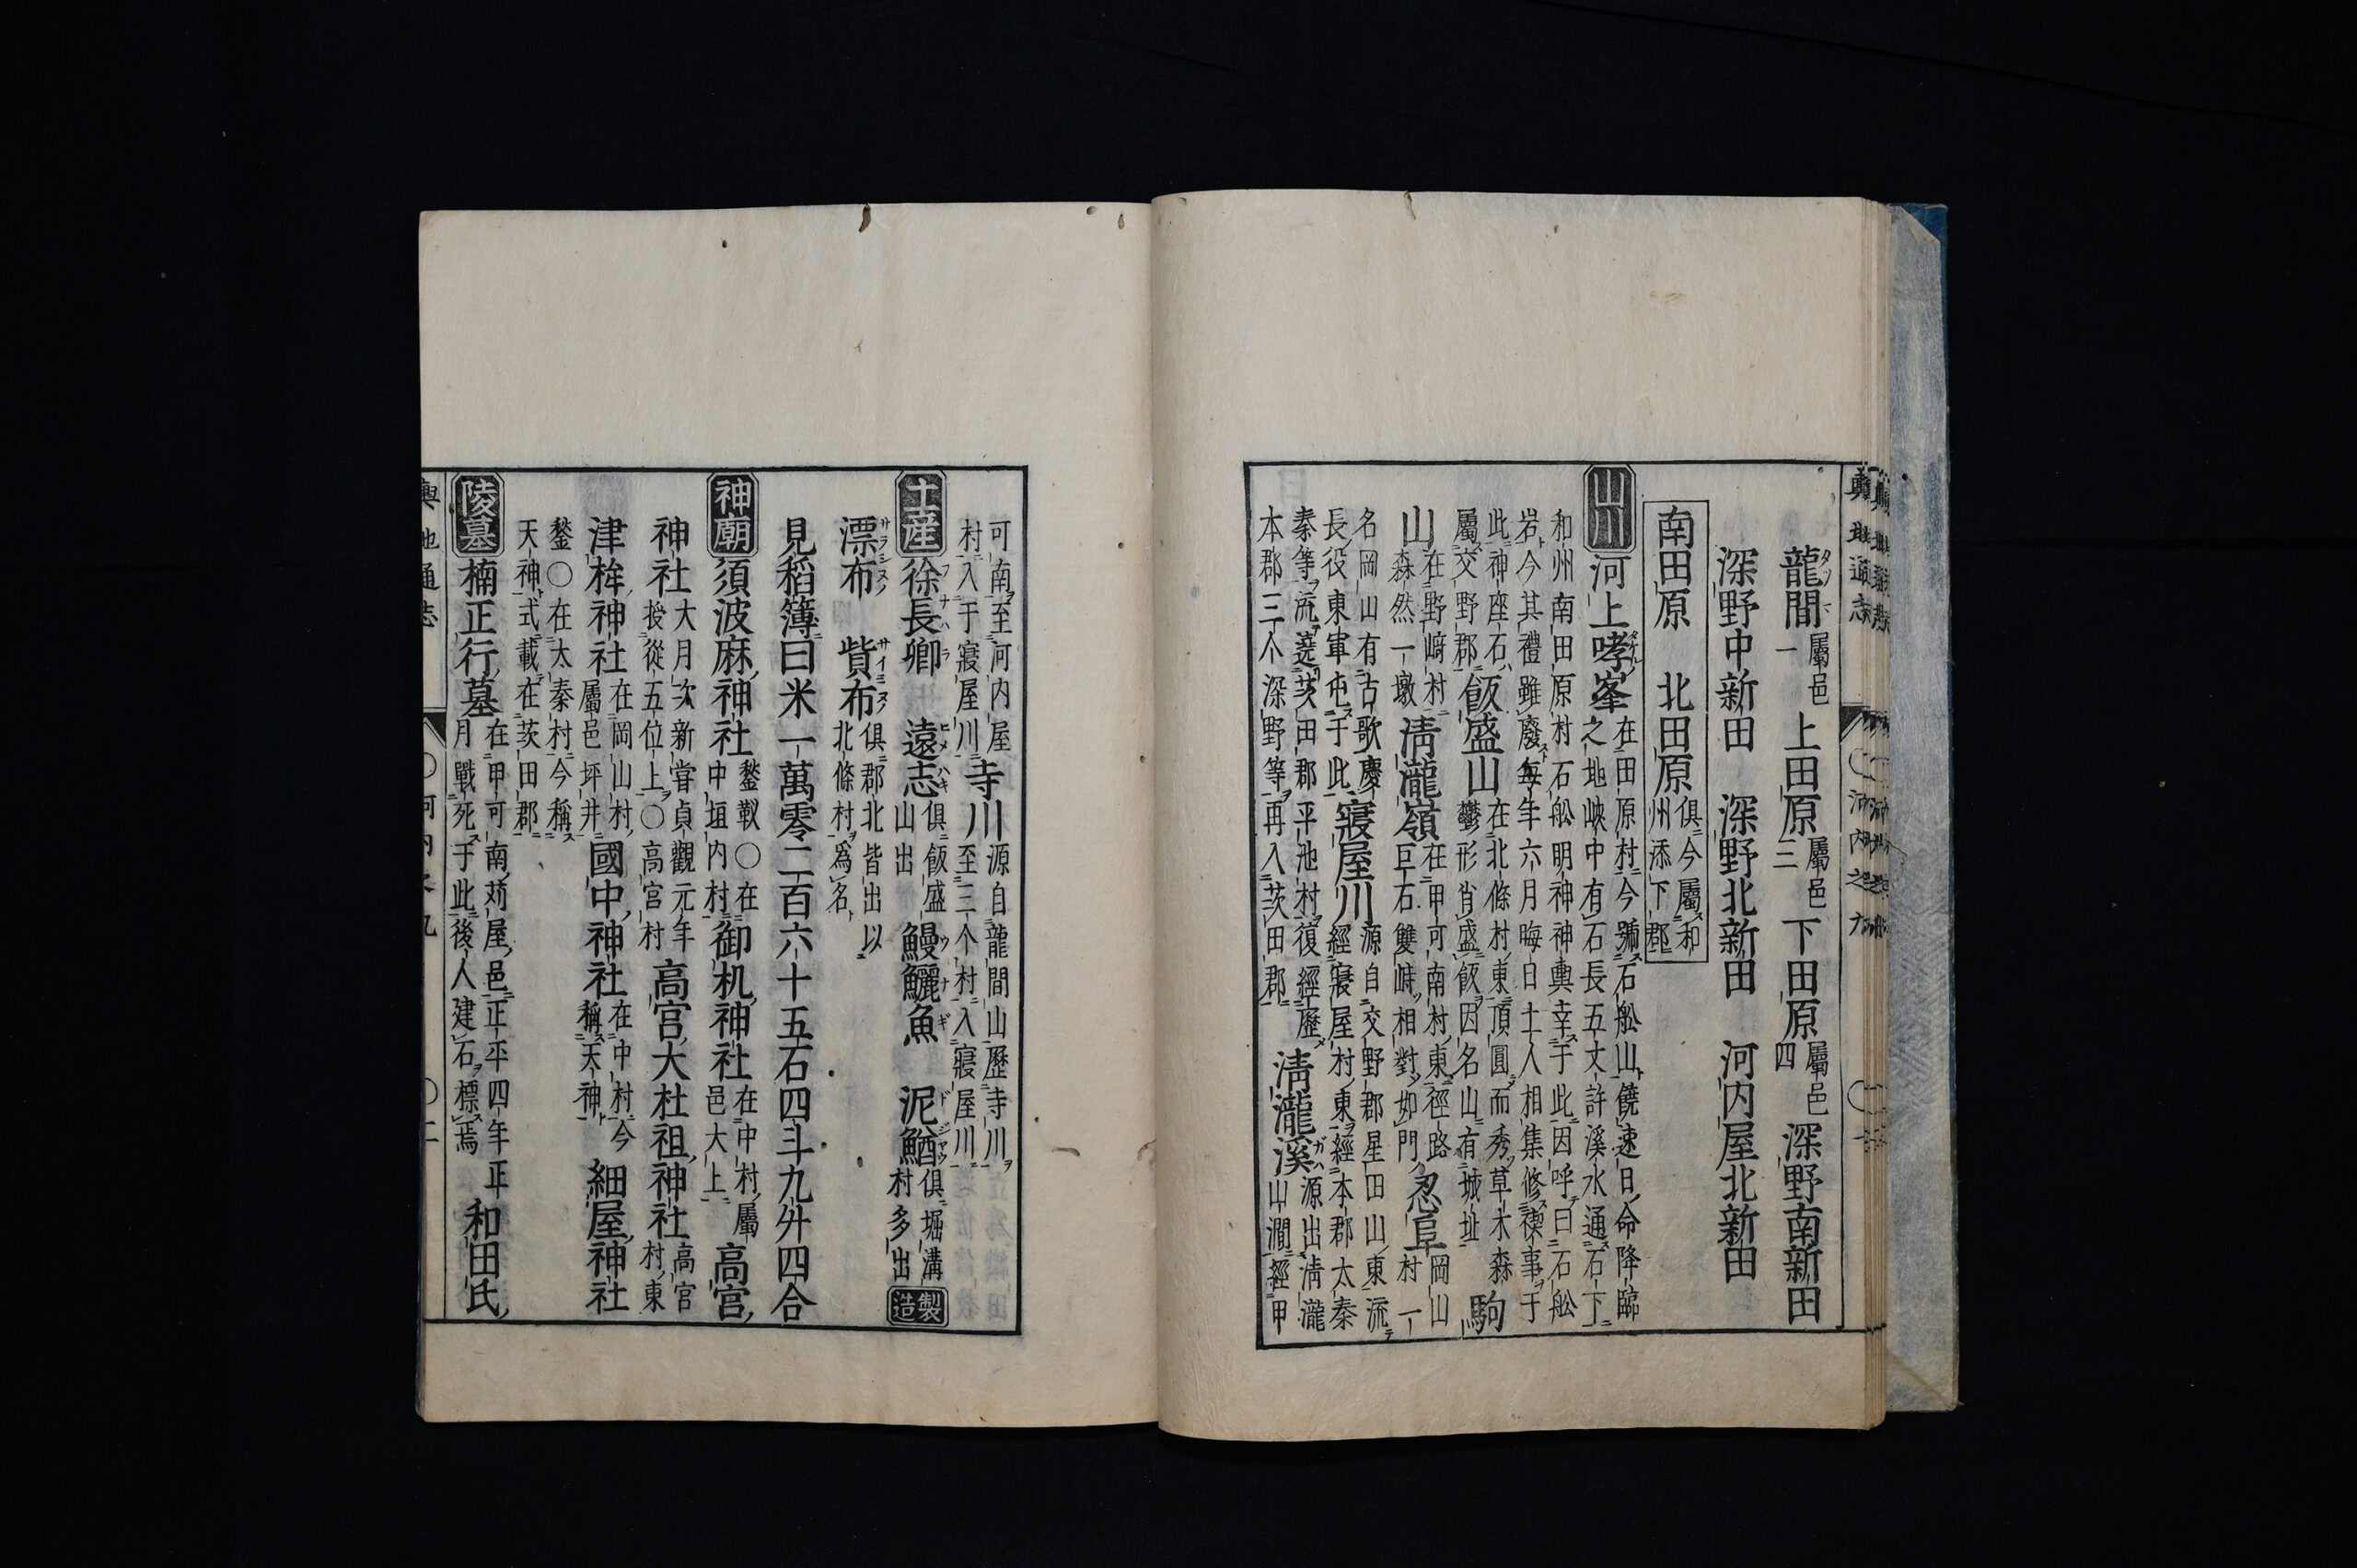 龍間屬邑一 上田原屬邑三 下田原屬邑四 深野南新田
深野中新田 深野北新田 河内屋北新田
南田原 北田原俱今屬和州添下郡
山川 河上哮峯在田原村今號石舩山饒速日命降臨之地峽中有石長五丈許溪水通石下
和州南田原村石舩明神神輿幸于此因呼曰石舩岩今其禮雖廢每年六月晦日土人相集修禊事于
此神座石屬交野郡 飯盛山在北條村東頂圓而秀草木森鬱形肖盛飯因名山有城址 駒
山在野﨑村森然一墩 淸瀧嶺在甲可南村東徑路巨石雙峙相對如門 忍阜岡山村一
名岡山有古歌慶長役東軍屯于此 寢屋川源自交野郡星田山東流經寢屋村東經本郡太秦
秦等流遶茨田郡平池村復經歷本郡三个深野等再入茨田郡 淸瀧溪源出淸瀧山澗經甲
可南至河内屋村入于寢屋川 寺川源自龍間山歷寺川至三个村入寢屋川
土産 徐長卿 遠志俱飯盛山出 鰻鱺魚 泥鰌俱堀溝村多出 製造
漂布 貲布俱郡北皆出以北條村爲名
見稻簿曰米一萬零二百六十五石四斗九舛四合
神廟 須波麻神社鍫靫〇在中垣内村 御机神社在中村屬邑大上 高宮
神社大月次新嘗貞觀元年授從五位上〇高宮村 高宮大杜祖神社高宮村東
津桙神社在岡山村屬邑坪井 國中神社在中村今稱天神 細屋神社
鍫〇在太秦村今稱天神式載在茨田郡
陵墓 楠正行墓在甲可南苅屋邑正平四年正月戰死于此後人建石標焉 和田氏
輿地通志 〇河内之九